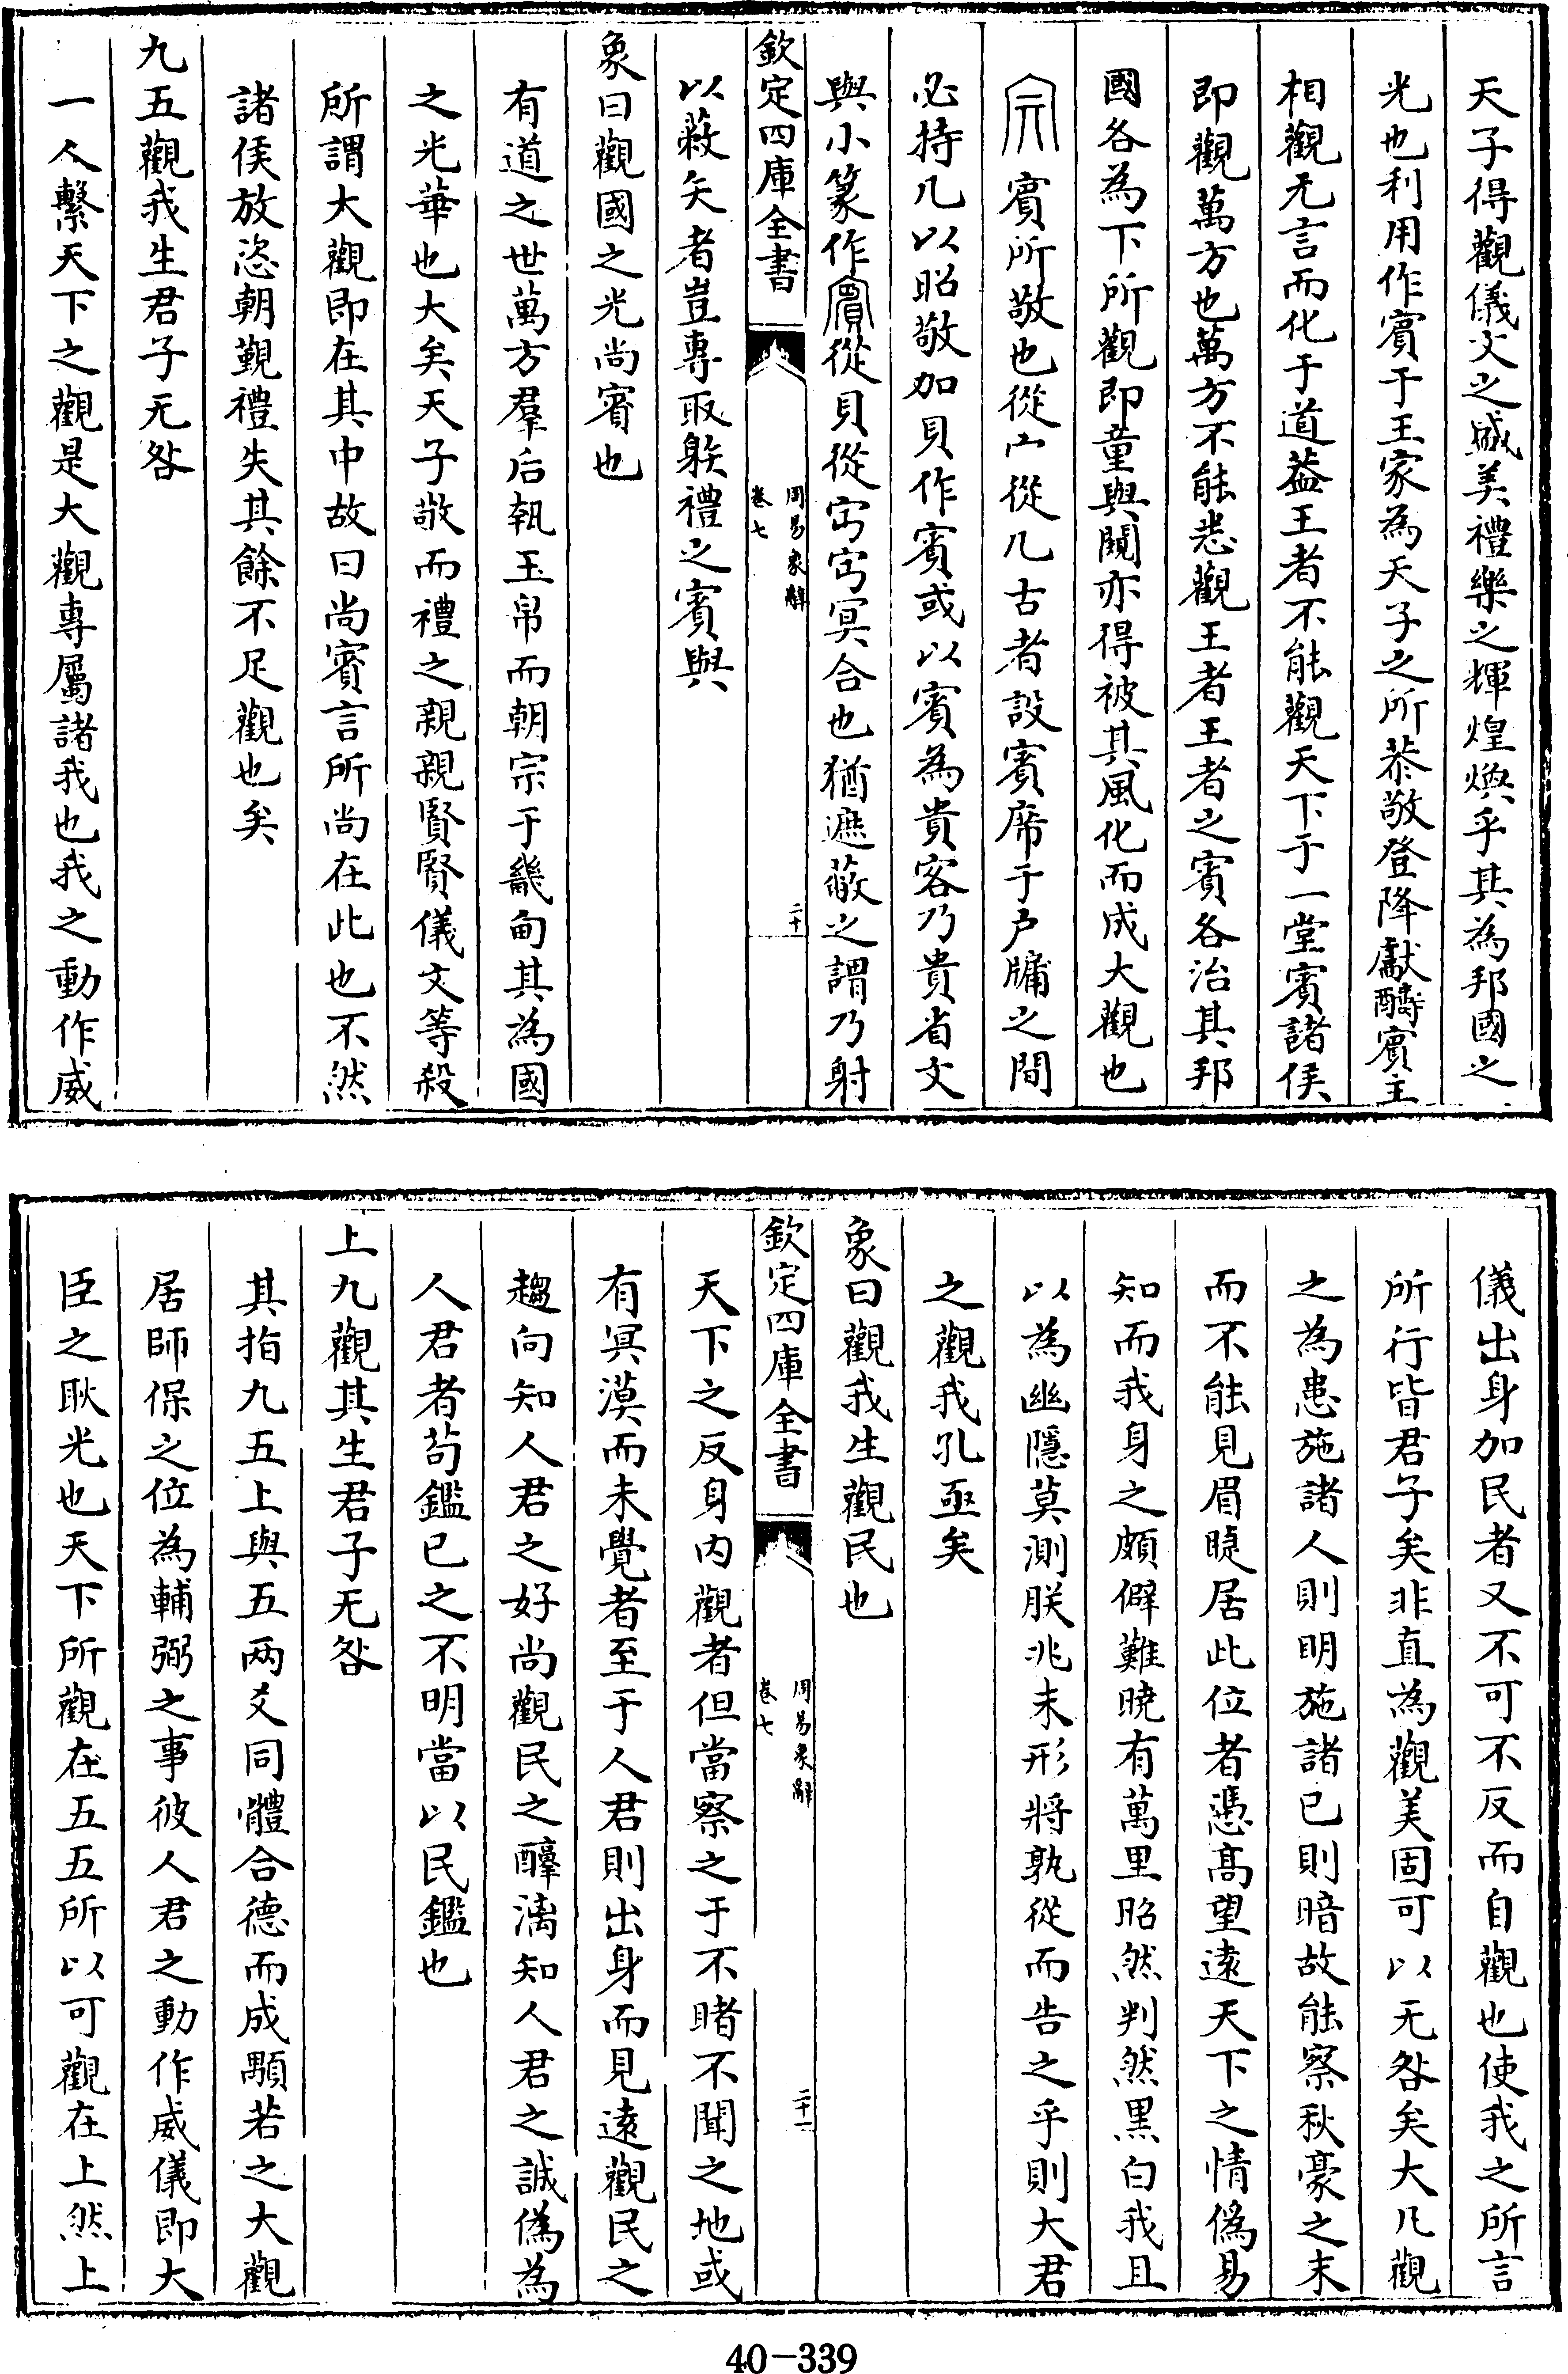 天子得觀儀文之盛美禮樂之輝煌煥乎其為邦國之
光也利用作賓于王家為天子之所恭敬登降獻酬賓主
相觀无言而化于道葢王者不能觀天下于一堂賓諸侯
即觀萬方也萬方不能悉觀王者王者之賓各治其邦
國各為下所觀即童與闚亦得被其風化而成大觀也
賓所敬也從宀從几古者設賓席于戶牖之間
必持几以昭敬加貝作賓或以賓為貴客乃貴省文
與小篆作賓從貝從宀宀冥合也猶遮蔽之謂乃射
欽定四庫全書
周易象辭
卷七
二十
以蔽矢者豈專取躲禮之賓與
象曰觀國之光尚賓也
有道之世萬方羣后執玉帛而朝宗于畿甸其為國
之光華也大矣天子敬而禮之親親賢賢儀文等殺
所謂大觀即在其中故曰尚賓言所尚在此也不然
諸侯放恣朝覲禮失其餘不足觀也矣
九五觀我生君子无咎
一人繫天下之觀是大觀專屬諸我也我之動作威
儀出身加民者又不可不反而自觀也使我之所言
所行皆君子矣非直為觀美固可以无咎矣大凡觀
之為患施諸人則明施諸已則暗故能察秋豪之末
而不能見眉睫居此位者憑髙望逺天下之情偽易
知而我身之頗僻難曉有萬里昭然判然黑白我且
以為幽隱莫測朕兆未形將孰從而告之乎則大君
之觀我孔亟矣
象曰觀我生觀民也
欽定四庫全書
周易象辭
卷七
二十一
天下之反身内觀者但當察之于不睹不聞之地或
有冥漠而未覺者至于人君則出身而見逺觀民之
趨向知人君之好尚觀民之醇漓知人君之誠偽為
人君者茍鑑已之不明當以民鑑也
上九觀其生君子无咎
其指九五上與五兩爻同體合德而成顒若之大觀
居師保之位為輔弼之事彼人君之動作威儀即大
臣之耿光也天下所觀在五五所以可觀在上然上
40-339